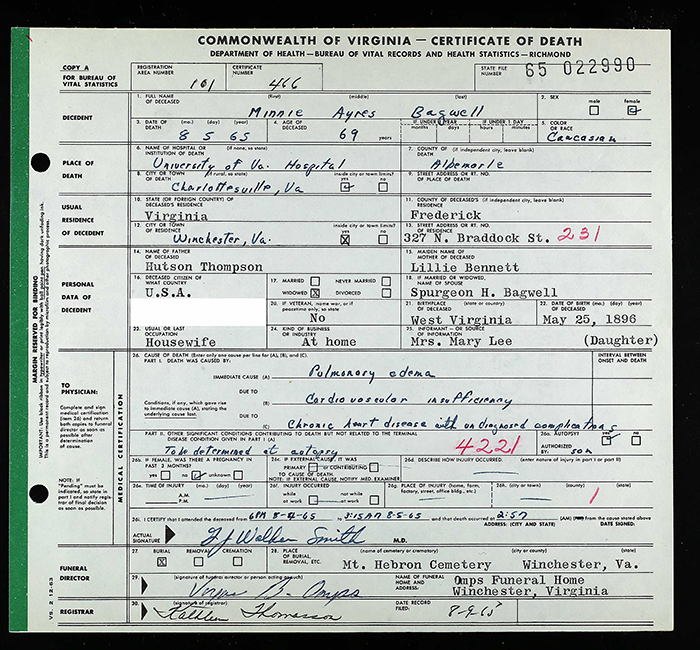 COMMONWEALTH OF VIRGINIA — CERTIFICATE OF DEATH
DEPARTMENT OF HEALTH—BUREAU OF VITAL RECORDS AND HEALTH STATISTICS—RICHMOND
COPY A
FOR BUREAU OF VITAL STATISTICS
REGISTRATION AREA NUMBER 101
CERTIFICATE NUMBER 466
STATE FILE NUMBER 65 022990
DECEDENT
1. FULL NAME OF DECEASED (first) (middle) (last)
Minnie Ayres Bagwell
2. SEX male female
3. DATE OF DEATH (mo.) (day) (year) 8 5 65
4. AGE OF DECEASED 69 years
IF UNDER 1 YEAR months days
IF UNDER 1 DAY hours minutes
5. COLOR OR RACE Caucasian
PLACE OF DEATH
6. NAME OF HOSPITAL OR INSTITUTION OF DEATH (if none, so state)
University of Va. Hospital
7. COUNTY OF DEATH (if independent city, leave blank)
Albemarle
8. CITY OR TOWN OF DEATH (if rural, so state) inside city or town limits? yes no
Charlottesville, Va
9. STREET ADDRESS OR RT. NO. OF PLACE OF DEATH
USUAL RESIDENCE OF DECEDENT
10. STATE (OR FOREIGN COUNTRY) OF DECEASED'S RESIDENCE
Virginia
11. COUNTY OF DECEASED'S RESIDENCE (if independent city, leave blank)
Frederick
12. CITY OR TOWN OF RESIDENCE inside city or town limits? yes X no
Winchester, Va.
13. STREET ADDRESS OR RT. NO. OF RESIDENCE
327 N. Braddock St. 231
PERSONAL DATA OF DECEDENT
14. NAME OF FATHER OF DECEASED
Hutson Thompson
15. MAIDEN NAME OF MOTHER OF DECEASED
Lillie Bennett
16. DECEASED CITIZEN OF WHAT COUNTRY
U.S.A.
17. MARRIED NEVER MARRIED
WIDOWED X DIVORCED
18. IF MARRIED OR WIDOWED, NAME OF SPOUSE
Spurgeon H. Bagwell
20. IF VETERAN, name war, or if peacetime only, so state
No
21. BIRTHPLACE OF DECEASED (state or country)
West Virginia
22. DATE OF BIRTH OF DECEASED (mo.) (day) (year)
May 25, 1896
23. USUAL OR LAST OCCUPATION
Housewife
24. KIND OF BUSINESS OR INDUSTRY
At home
25. INFORMANT - OR SOURCE OF INFORMATION
Mrs. Mary Lee (Daughter)
TO PHYSICIAN:
Complete and sign medical certification (item 26) and return both copies to funeral director as soon as possible after determination of cause.
NOTE: If "Pending" must be indicated, so state in part I and notify registrar of final decision as soon as possible.
MEDICAL CERTIFICATION
26. CAUSE OF DEATH (Enter only one cause per line for (A), (B), and (C).)
INTERVAL BETWEEN ONSET AND DEATH
PART I. DEATH WAS CAUSED BY:
IMMEDIATE CAUSE (A) Pulmonary edema
Conditions, if any, which gave rise to immediate cause (A), stating the underlying cause last.
DUE TO (B) Cardiovascular insufficiency
DUE TO (C) Chronic heart disease with undiagnosed complications
PART II. OTHER SIGNIFICANT CONDITIONS CONTRIBUTING TO DEATH BUT NOT RELATED TO THE TERMINAL DISEASE CONDITION GIVEN IN PART I (A)
To be determined at autopsy
4221
26a. AUTOPSY? yes no
AUTHORIZED BY: son
26b. IF FEMALE, WAS THERE A PREGNANCY IN PAST 3 MONTHS? yes no unknown
26c. IF EXTERNAL CAUSE, IT WAS
PRIMARY or CONTRIBUTING
TO CAUSE OF DEATH.
NOTE: IF EXTERNAL CAUSE NOTIFY MED. EXAMINER
26d. DESCRIBE HOW INJURY OCCURRED. (enter nature of injury in part I or part II)
26e. TIME OF INJURY (mo.) (day) (year) A.M. P.M.
26f. INJURY OCCURRED while at work not while at work
26g. PLACE OF INJURY (home, farm, factory, street, office bldg., etc.)
26h. (city or town) (county) (state)
1
26i. I certify that I attended the deceased from 6PM 8-4-65 to 3:15AM 8-5-65 and that death occurred at 2:57 (AM) (PM) from the cause stated above
ACTUAL SIGNATURE Walker Smith M.D.
ADDRESS: (CITY AND STATE) DATE SIGNED:
FUNERAL DIRECTOR
27. BURIAL X REMOVAL CREMATION
28. PLACE OF BURIAL, REMOVAL, ETC. (name of cemetery or crematory) (city or county) (state)
Mt. Hebron Cemetery Winchester, Va.
29. (signature of funeral director or person acting as such)
B. Omps
NAME OF FUNERAL HOME AND ADDRESS:
Omps Funeral Home
Winchester, Virginia
REGISTRAR
30. (signature of registrar)
Kathleen Thomasson
DATE RECORD FILED: 8-9-65
MARGIN RESERVED FOR BINDING
VS. 2 12-63